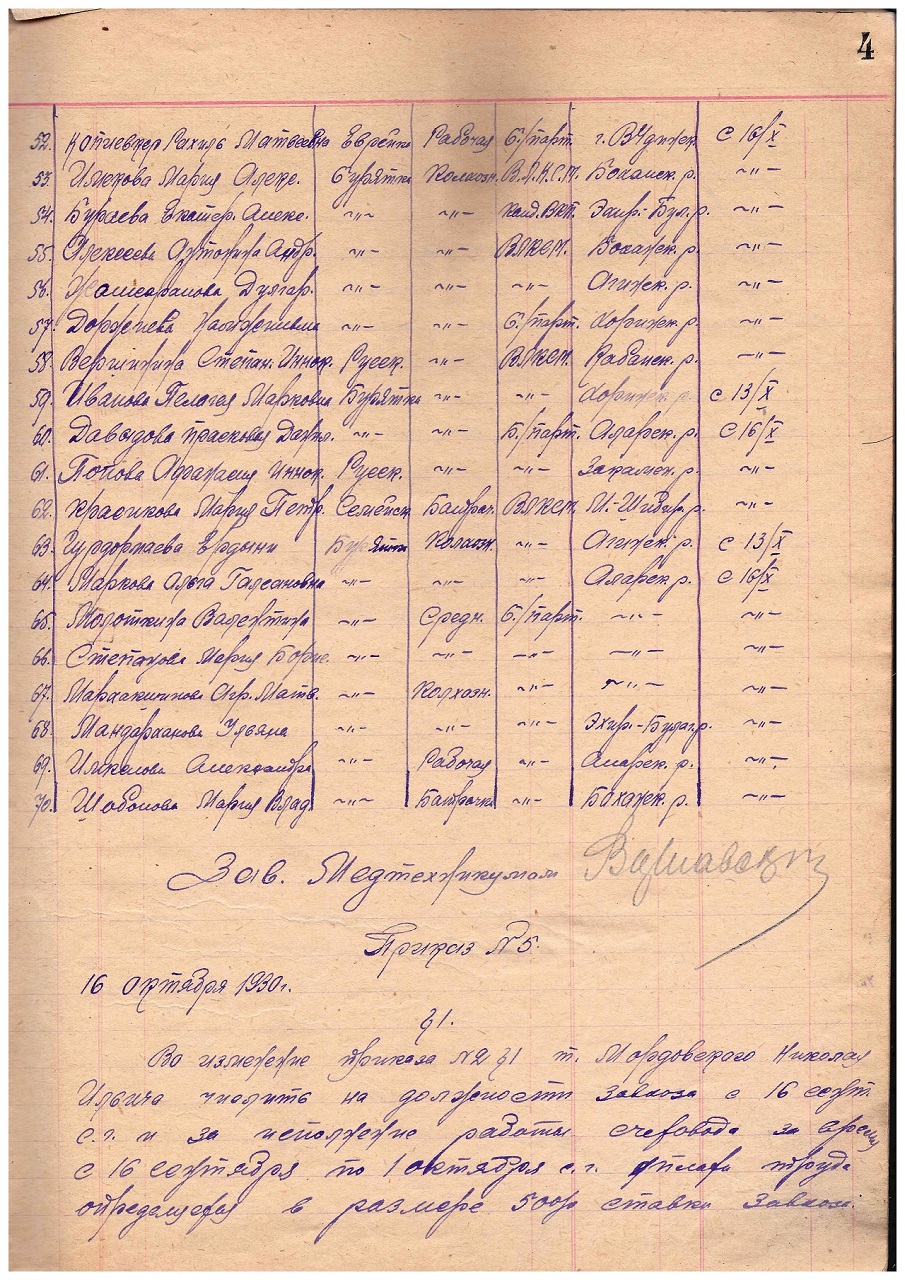 4
52. Рахиль Матвеевна Еврейка Рабочая б./парт. г. В-Удинск с 16/X
53. Мария Алекс. Бурятка Колхозн. В.Л.К.С.М. Боханск. р. -"-
54. Бураева Екатер. Алекс. -"- -"- канд. ВКП. Эхир.-Бул. р. -"-
55. Алексеева Антонина Андр. -"- -"- ВЛКСМ. Боханск. р. -"-
56. Дулгар. -"- -"- -"- Агинск. р. -"-
57. Доржиева -"- -"- б./парт. Хоринск. р. -"-
58. Вершинина Степан. Иннок. Русск. -"- ВЛКСМ. Кабанск. р. -"-
59. Иванова Пелагея Марковна Бурятка -"- -"- Хоринск. р. с 13/X
60. Давыдова Прасковья -"- -"- Б./парт. Аларск. р. с 16/X
61. Попова Афанасия Иннок. Русск. -"- -"- Закамен. р. -"-
62. Красикова Мария Петр. Семейск. Батрач. ВЛКСМ. М.-Шибир. р. -"-
63. Ердыни Бурятка Колхозн. -"- Агинск. р. с 13/X
64. Маркова Ольга Галсановна -"- -"- -"- Аларск р. с 16/X
65. Молошкина Валентина -"- Средн. б./парт. -"- -"-
66. Степанова Мария Борис. -"- -"- -"- -"- -"-
67. Агр. Матв. -"- Колхозн. -"- -"- -"-
68. Мандарханова Ульяна -"- -"- -"- Эхир.-Булаг. р. -"-
69. Александра -"- Рабочая -"- Аларск. р. -"-
70. Шобонова Мария Влад. -"- Батрачка -"- Боханск. р. -"-
Зав. Медтехникумом Варшавский
Приказ №5.
16 октября 1930г.
§1.
Во изменение приказа №2 §1 т. Мордовского Николая
Ильича числить на должности Завхоза с 16 сент.
с.г. и за исполнение работы счетовода за время
с 16 сентября по 1 октября с.г. оплата труда
определяется в размере 50% ставки Завхоза.